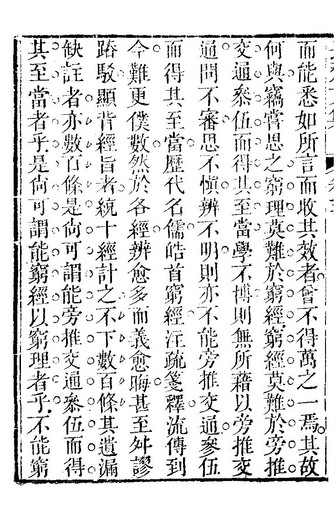 而能悉如所言而收其效者曾不得萬之一焉其故
何與竊嘗思之窮理莫難於窮經窮經莫難於旁推
交通叅伍而得其至當學不博則無所藉以旁推交
通問不審思不愼辨不明則亦不能旁推交通叅伍
而得其至當歷代名儒皓首窮經注疏箋釋流傳到
今難更僕數然於各經辨愈多而義愈晦甚至舛謬
踳駁顯背經旨者統十經計之不下數百條其遺漏
缺註者亦數百條是尙可謂能旁推交通叅伍而得
其至當者乎是尙可謂能窮經以窮理者乎不能窮